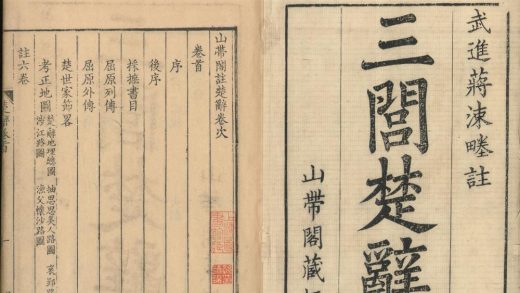 武進蔣涑畻註
三閭楚辭
山帶閣藏
山帶閣註楚辭卷次
卷首
序
後序
採摭書目
屈原列傳
屈原外傳
楚世家節畧
考正地圖 楚辭地理總圖 抽思思美人路圖 哀郢路圖
涉江路圖 漁父懷沙路圖
註六卷